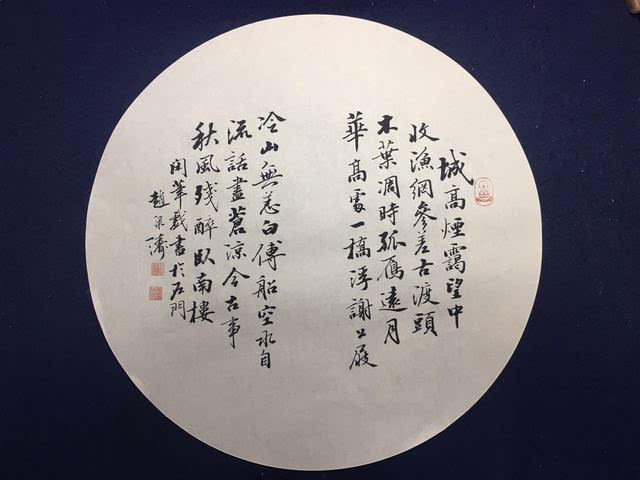 城高煙靄望中
收漁網參差古渡頭
木葉凋時孤鴈遠月
華高處一橋浮謝公屐
冷山無恙白傅船空水自
流話盡蒼涼今古事
秋風殘醉臥南樓
閑筆戲書於石門
趙泉濤